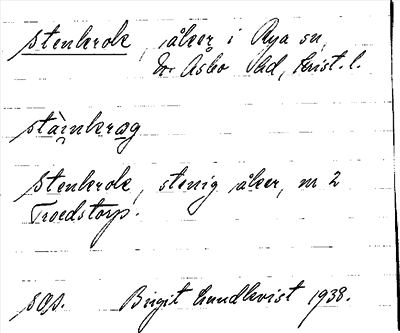 stenkrok, åker i Rya sn,
Ö. Åsbo hd, Krist. l.
stàinkrog
stenkrok, stenig åker, nr 2
Troedstorp.
sop. Birgit Lundkvist 1938.